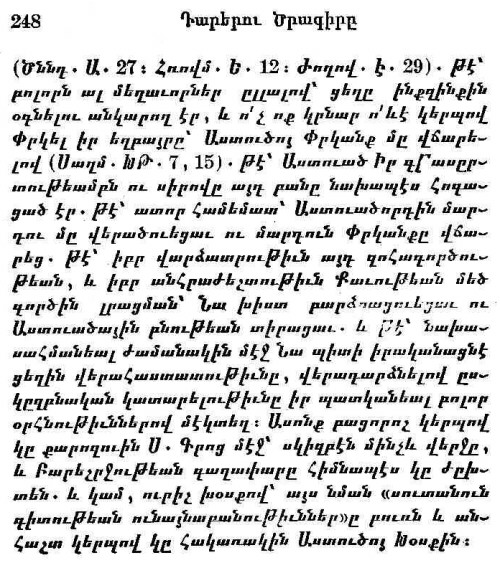 248 Դարերու Ծրագիրը
(Ծննդ. Ա. 27: Հռովմ. Ե. 12: Ժողով. է. 29). թէ՝
բոլորն ալ մեղաւորներ ըլլալով՝ ցեղը ինքզինքին
օգնելու անկարող էր, և ո՛չ ոք կրնար ո՛ևէ կերպով
Փրկել իր եղբայրը՝ Աստուծոյ Փրկանք մը վճարե-
լով (Սաղմ. ԽԹ. 7, 15). թէ՝ Աստուած Իր գթասըր-
տութեամբն ու սիրովը այդ բանը նախապէս Հոգա-
ցած էր. թէ՝ ատոր Համեմատ՝ Աստուածորդին մար-
դու մը վերածուեցաւ ու մարդուն Փրկանքը վճա-
րեց. թէ՝ իբր վարձատրութիւն այդ զոհագործու-
թեան, և իբր անհրաժեշտութիւն Քաւութեան մեծ
գործին լրացման՝ Նա խիստ բարձրացուեցաւ ու
Աստուածային բնութեան տիրացաւ. և թէ՝ նախա-
սահմանեալ ժամանակին մէջ Նա պիտի իրականացնէ
ցեղին վերահաստատութիւնը, վերադարձնելով ըս-
կըզբնական կատարելութիւնը իր պատկանեալ բոլոր
օրհնութիւններով մէկտեղ: Ասոնք բացորոշ կերպով
կը քարոզուին Ս. Գրոց մէջ՝ սկիզբէն մինչև վերջը,
և Բարեշրջութեան գաղափարը Հիմնապէս կը ժըխ-
տեն. և կամ, ուրիշ խօսքով՝ այս նման «սուտանուն
գիտութեան ունայնաբանութիւններ»ը բուռն և ան-
Հաշտ կերպով կը Հակառակին Աստուծոյ Խօսքին: